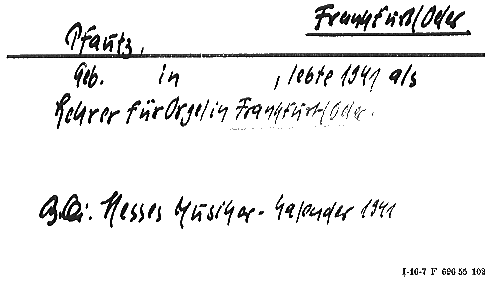 Frankfurt/Oder
Pfautz,
Geb. in , lebte 1941 als
Lehrer für Orgel in Frankfurt/Oder.
Hesses Musiker-Kalender 1941
I-16-7 F 696 55 102